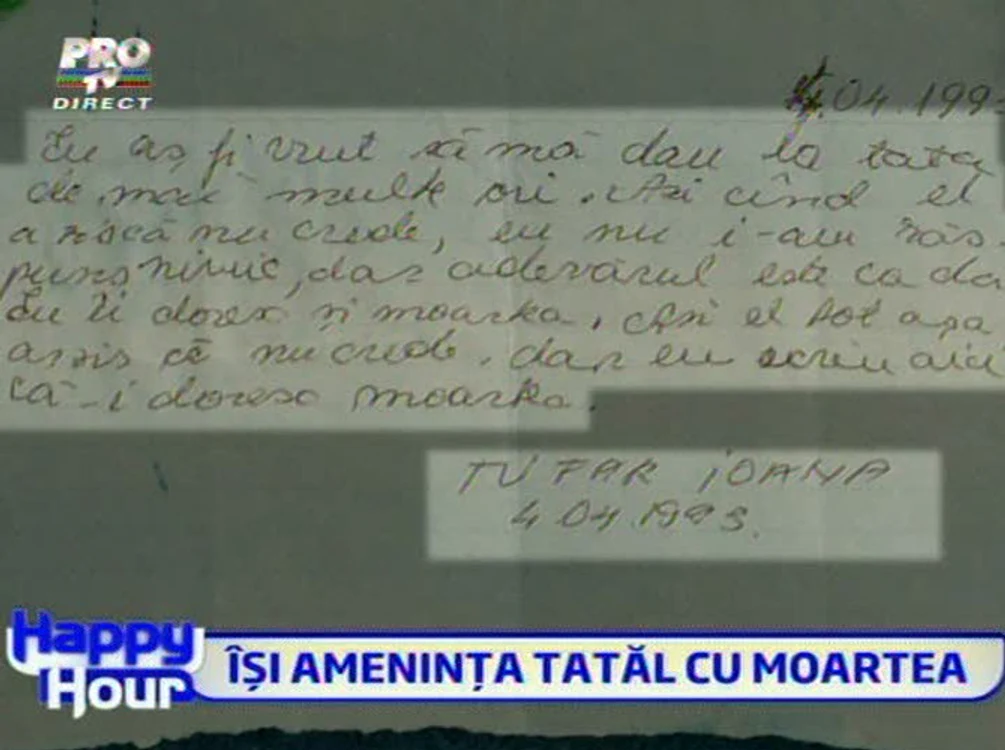 PRO
TV
DIRECT
4.04.199
Eu aș fi vrut să mă dau la tata
de mai multe ori. Azi cînd el
a zis că nu crede, eu nu i-am răs
puns nimic, dar adevărul este ca da
Eu îi doresc și moartea. Azi el tot așa
a zis că nu crede. dar eu scriu aici
că-i doresc moartea.
TUFAR IOANA
4.04.1993.
Happy
Hour
ÎȘI AMENINȚA TATĂL CU MOARTEA